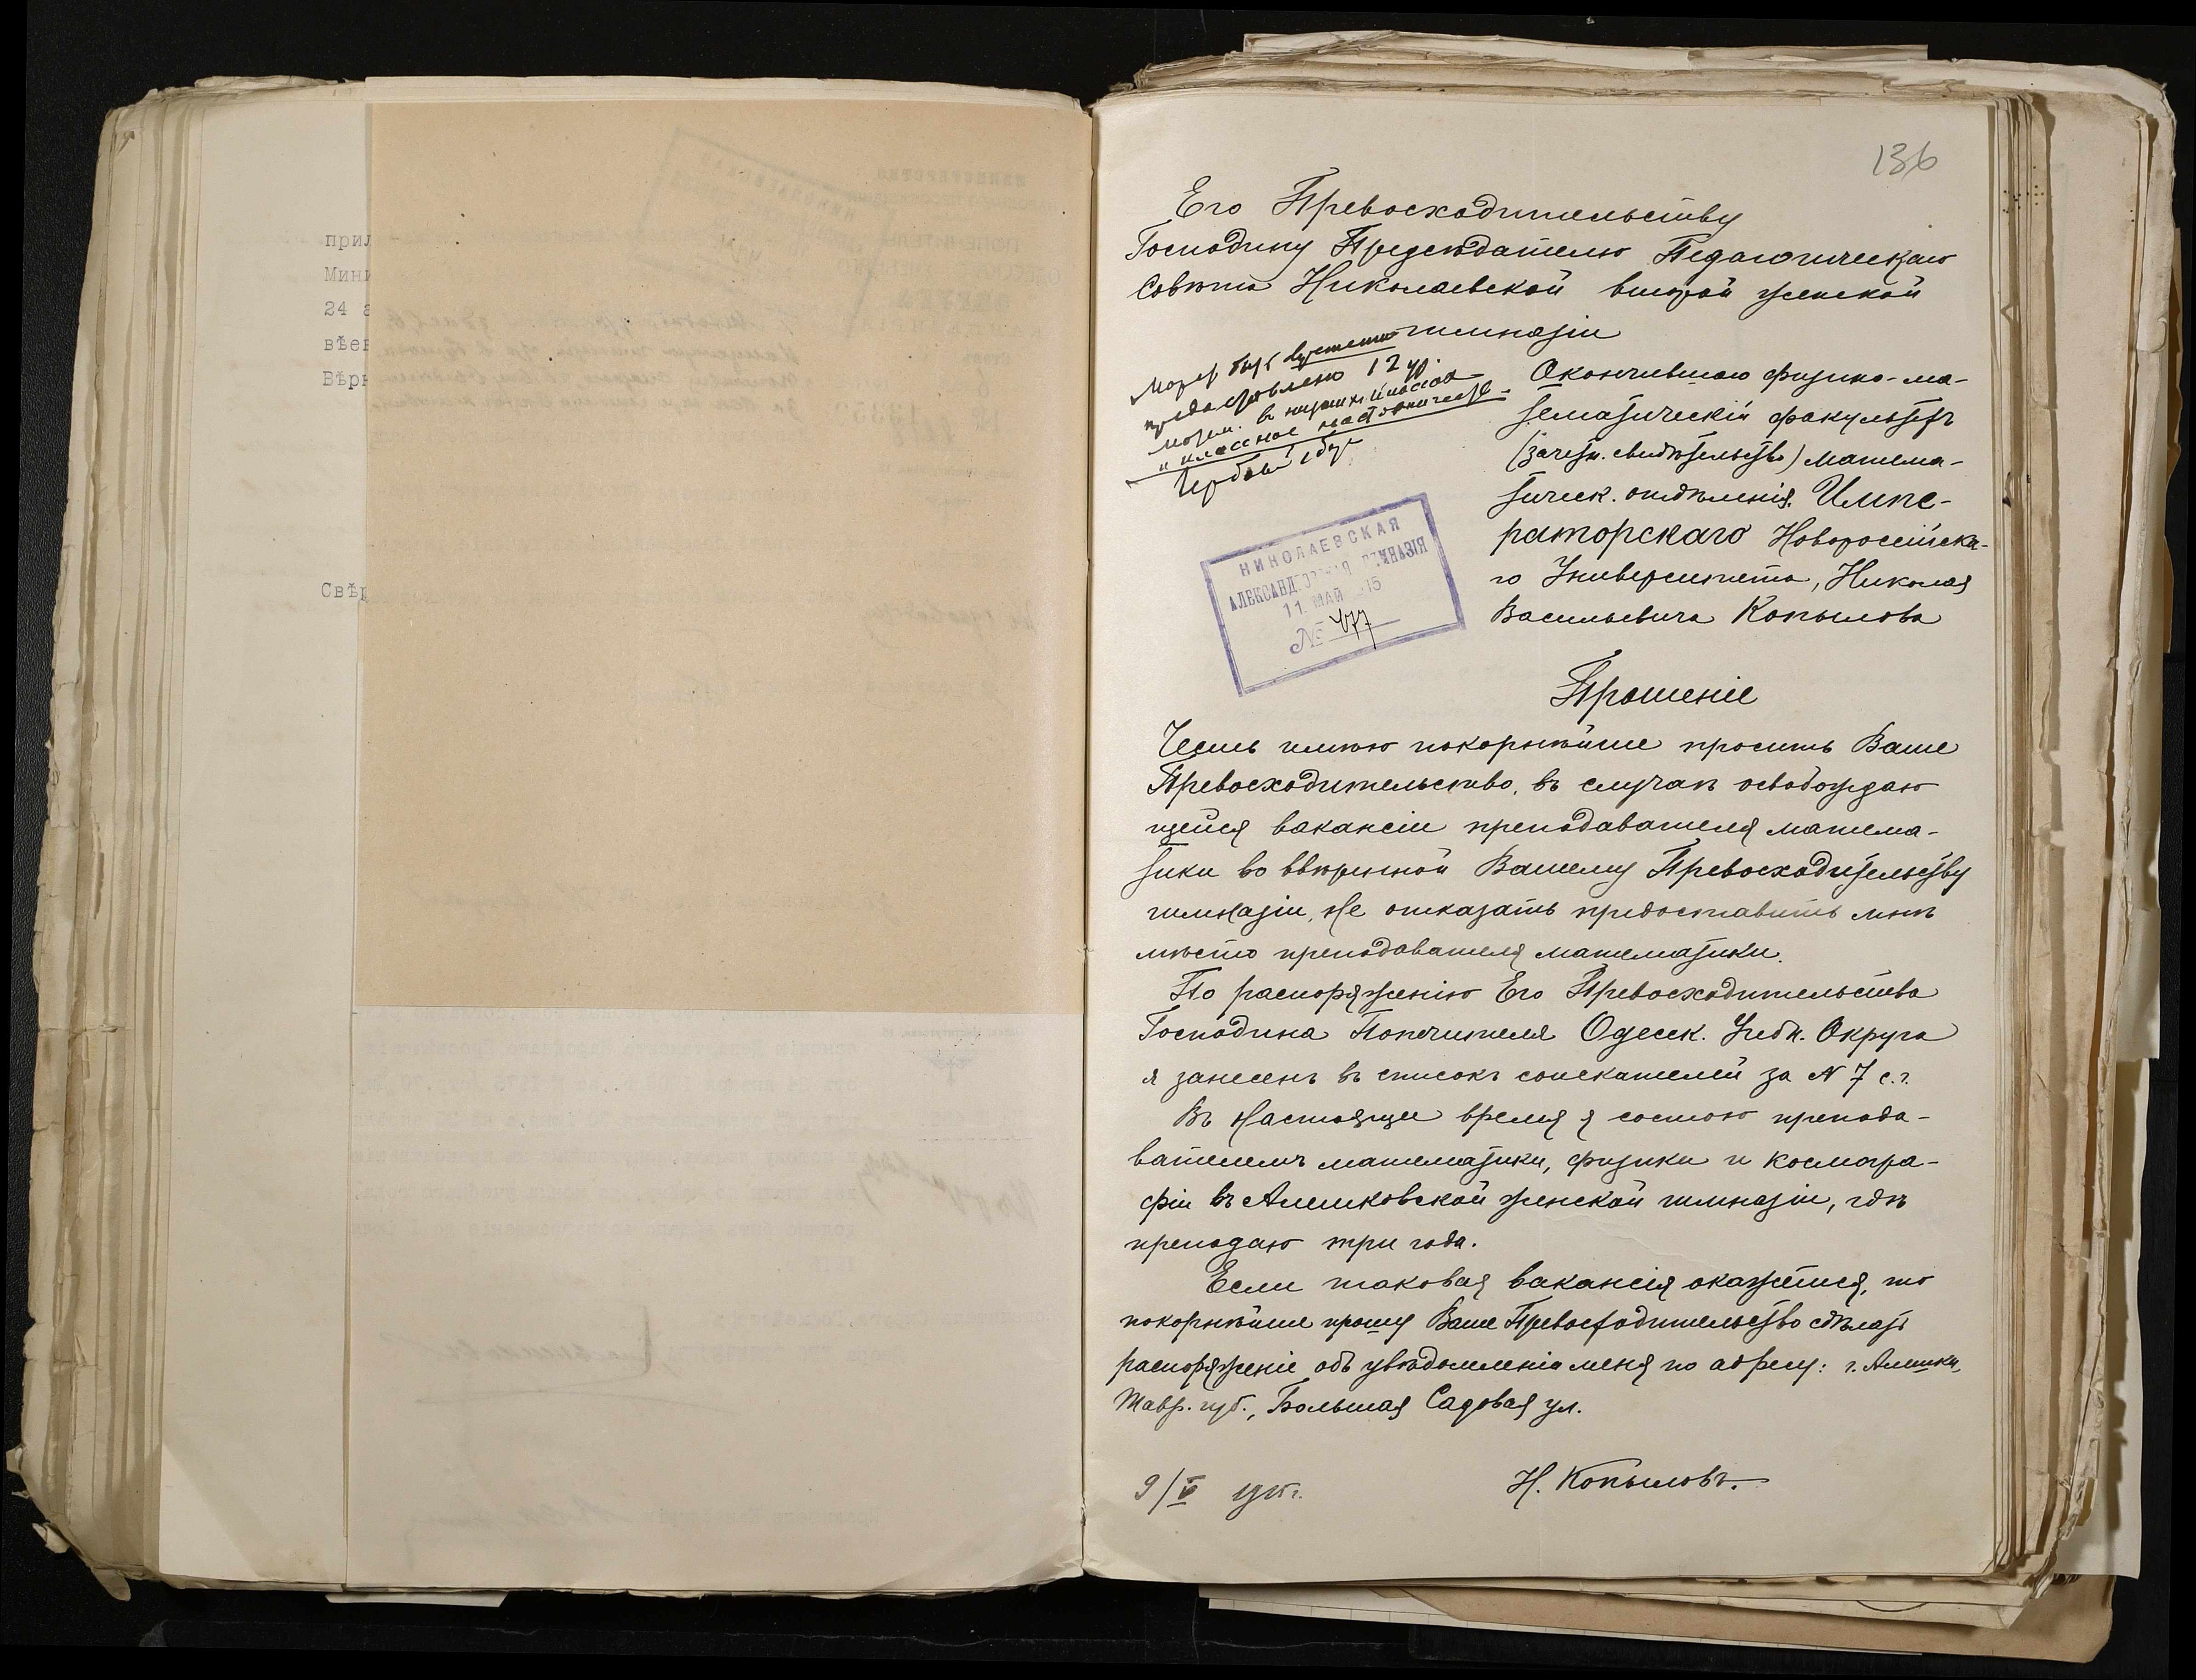 прил
Мини
24 а
вѣен
Вѣрн
Свѣр
136
Его Превосходительству
Господину Предсѣдателю Педагогическаго
Совѣта Николаевской второй женской
гимназіи
Можетъ быть
предоставлено 12 ур.
матем. въ низшихъ классахъ
и классное наставничество
НИКОЛАЕВСКАЯ
АЛЕКСАНДРОВСКАЯ ГИМНАЗІЯ
11. МАЙ 15
№ 477
Окончившаго физико-ма-
тематическій факультетъ
(зачетн. свидѣтельство) матема-
тическ. отдѣленія Импе-
раторскаго Новороссійска-
го Университета, Николая
Васильевича Копылова
Прошеніе
Честь имѣю покорнѣйше просить Ваше
Превосходительство, въ случаѣ освобождаю
щейся вакансіи преподавателя матема-
тики во ввѣренной Вашему Превосходительству
гимназіи, не отказать предоставить мнѣ
мѣсто преподавателя математики.
По распоряженію Его Превосходительства
Господина Попечителя Одесск. Учебн. Округа
я занесенъ въ списокъ соискателей за N 7 с.г.
Въ настоящее время я состою препода-
вателемъ математики, физики и космогра-
фіи въ Алешковской женской гимназіи, гдѣ
преподаю три года.
Если таковая вакансія окажется, то
покорнѣйше прошу Ваше Превосходительство сдѣлать
распоряженіе объ увѣдомленіи меня по адресу: г. Алешки,
Тавр. губ., Большая Садовая ул.
9/V 1915 г.
Н. Копыловъ.